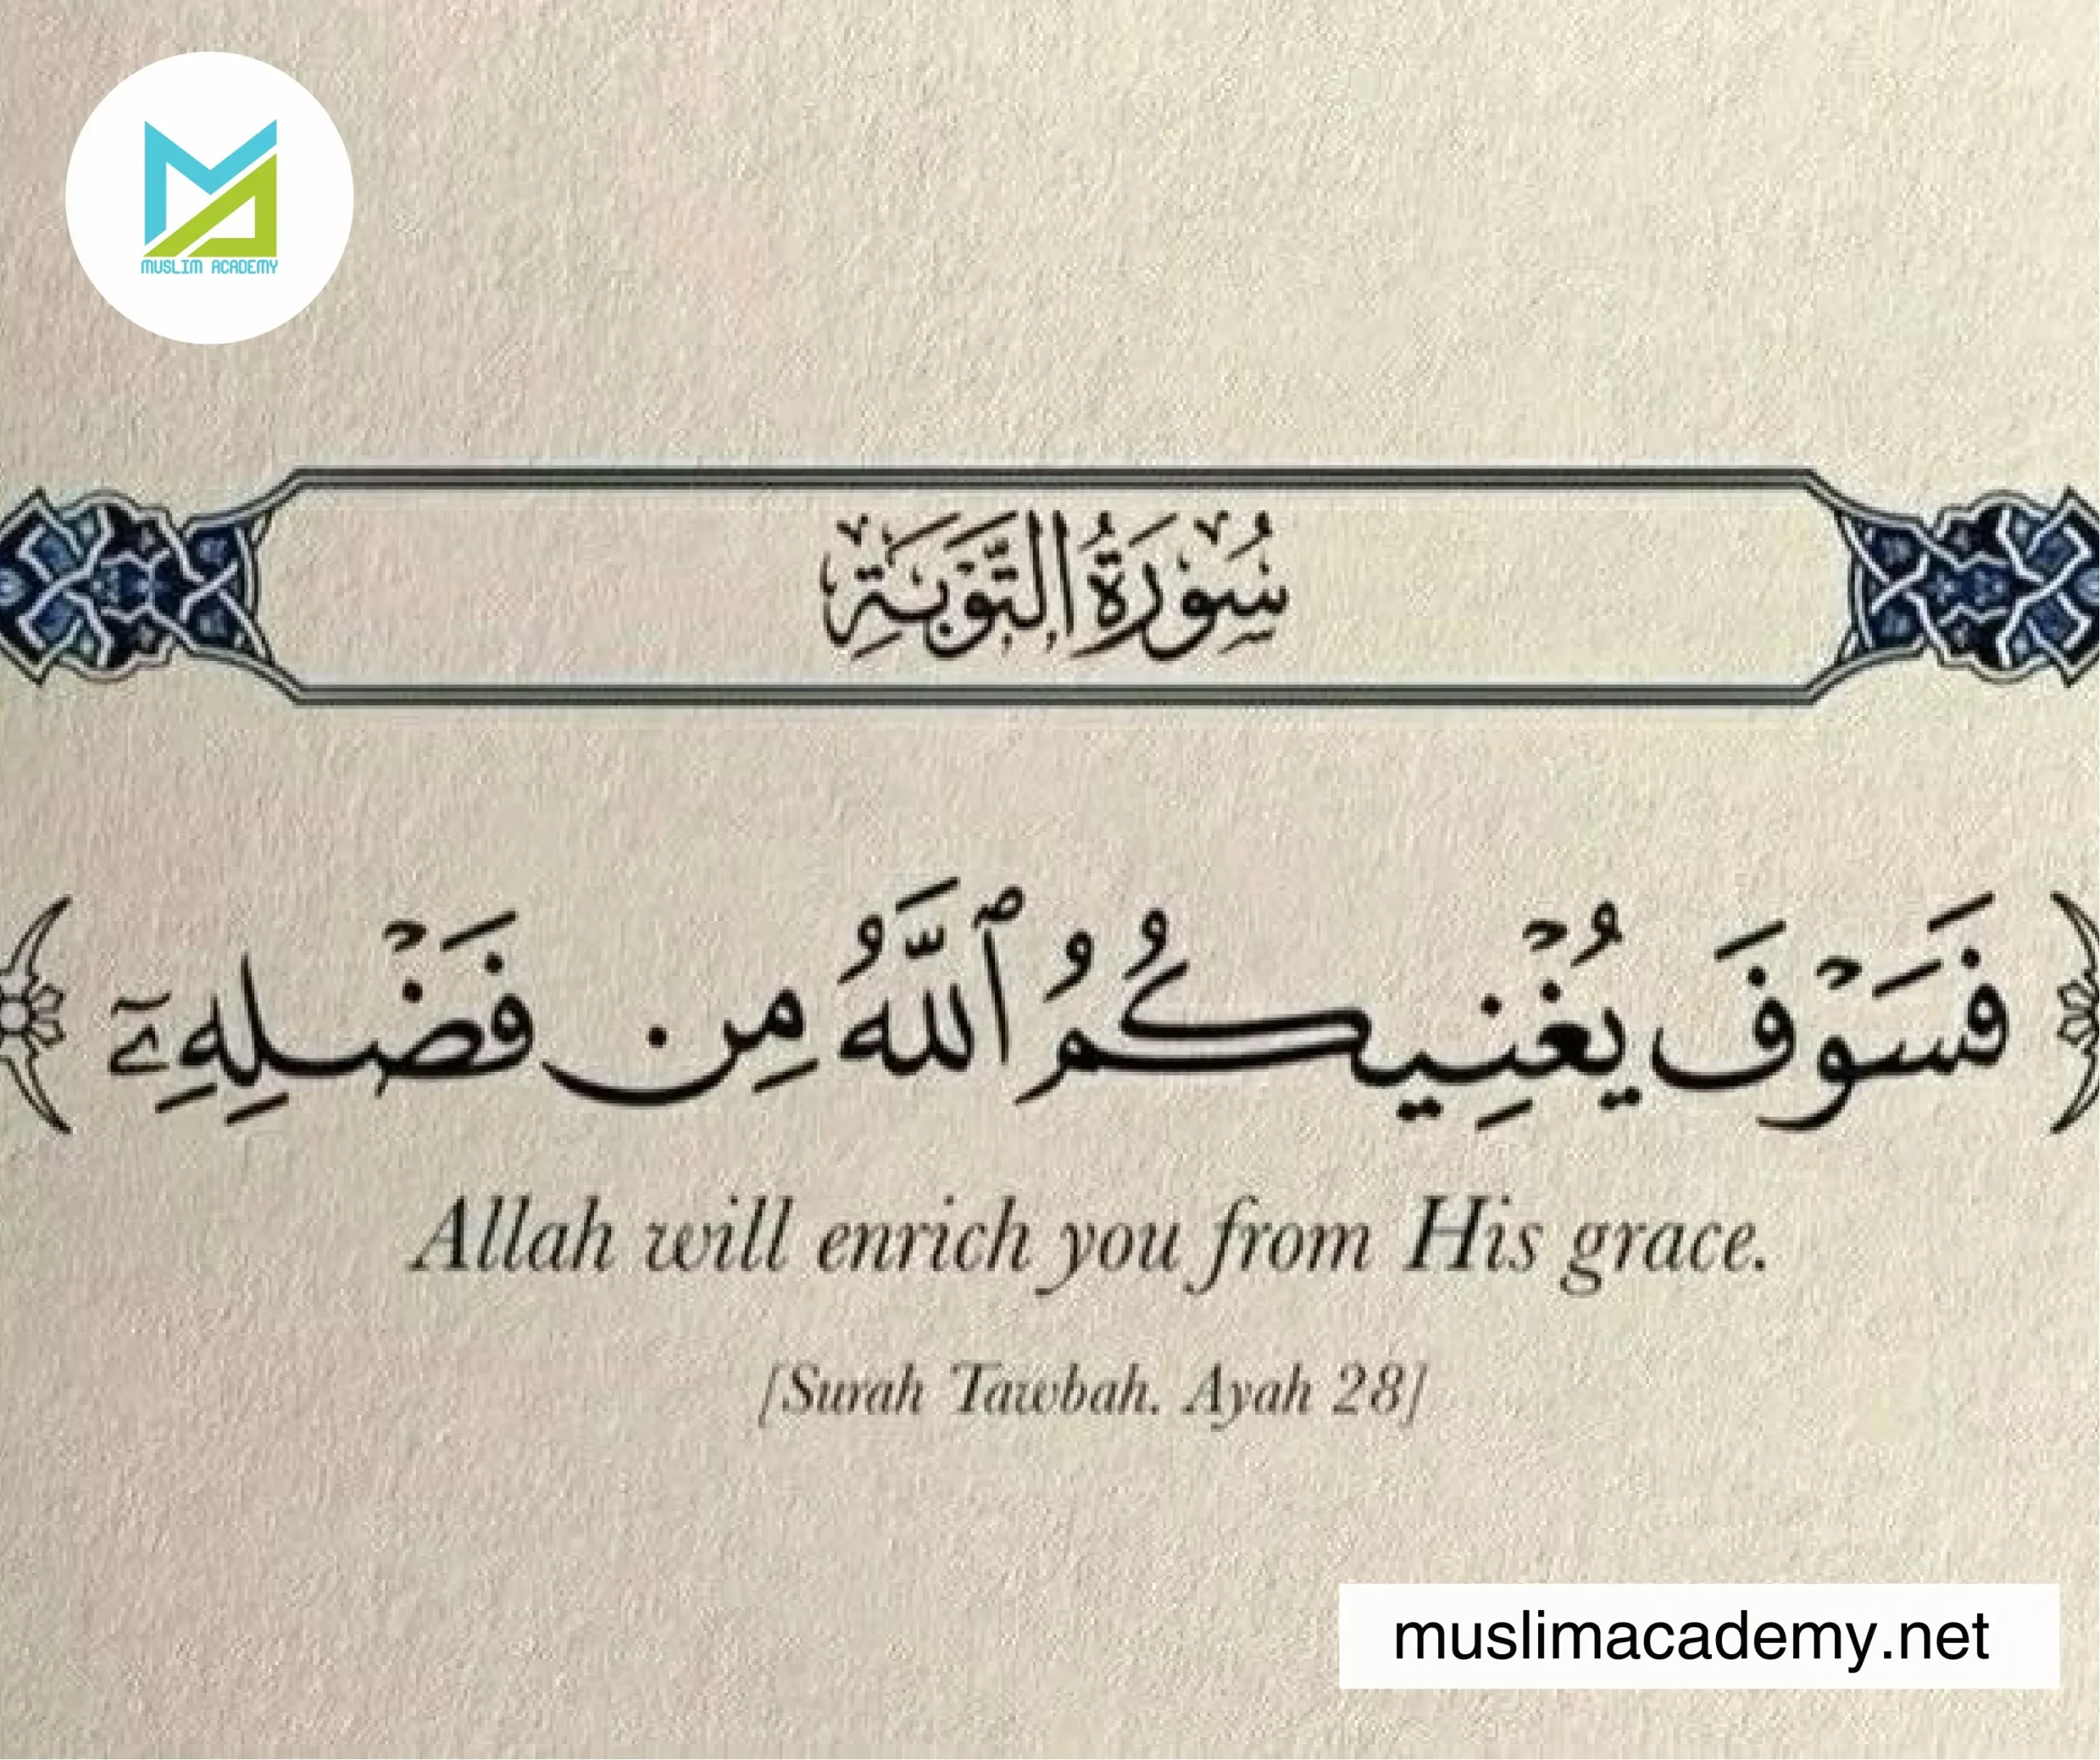 MUSLIM ACADEMY
سُوْرَةُ التَّوْبَةِ
﴿ فَسَوْفَ يُغْنِيكُمُ ٱللَّهُ مِن فَضْلِهِۦٓ ﴾
Allah will enrich you from His grace.
[Surah Tawbah. Ayah 28]
muslimacademy.net